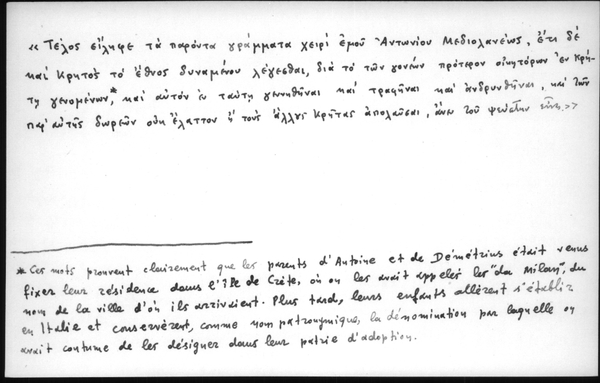 « Τέλος εἴληφε τὰ παρόντα γράμματα χειρὶ ἐμοῦ Ἀντωνίου Μεδιολανέως, ἔτι δὲ
καὶ Κρητὸς τὸ ἔθνος δυναμένου λέγεσθαι, διὰ τὸ τῶν γονέων πρότερον οἰκητόρων ἐν Κρή-
τῃ γενομένων,* καὶ αὐτὸν ἐν ταύτῃ γεννηθῆναι καὶ τραφῆναι καὶ ἀνδρυνθῆναι, καὶ τῶν
παρ' αὐτῆς δωρεῶν οὐκ ἔλαττον ἢ τοὺς ἄλλους Κρῆτας ἀπολαῦσαι, ἄνευ τοῦ ψεύστην εἶναι. »
* Ces mots prouvent clairement que les parents d'Antoine et de Démétrius était venus
fixer leur résidence dans l'île de Crète, où on les avait appelés les "da Milan", du
nom de la ville d'où ils arrivaient. Plus tard, leurs enfants allèrent s'établir
en Italie et conservèrent, comme nom patronymique, la dénomination par laquelle on
avait coutume de les désigner dans leur patrie d'adoption.